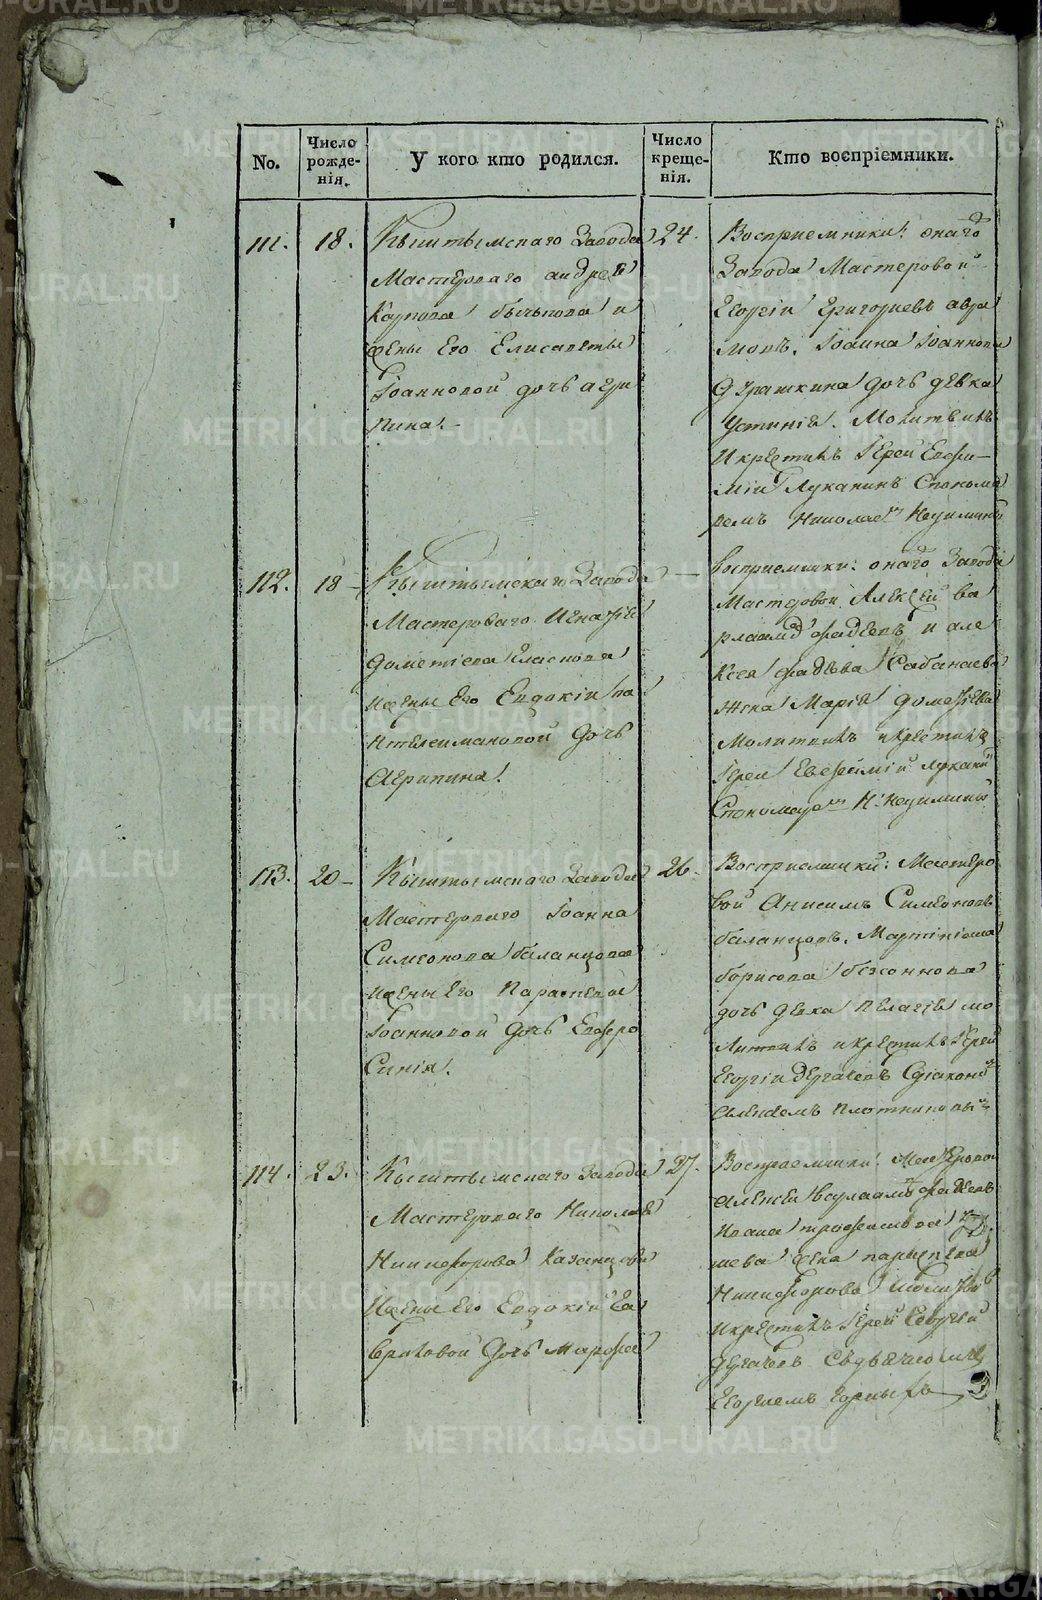 No.
Число рожде-нія.
У кого кто родился.
Число креще-нія.
Кто воспріемники.
111.
18.
Кыштымскаго Завода
Мастероваго андрея
Карпова бычкова и
жены Его Елисаветы
Іоанновой дочь агри
пина.
24.
Воспріемники: онаго
Завода Мастеровой
Георгій Григорьевъ авра
мовъ. Іоанна Іоаннова
дочь девка
Устинія. Молитвилъ
И крестилъ Іерей Евфи-
мій Луканинъ Спонома
ремъ Николаемъ
112.
18
Кыштымскаго Завода
Мастероваго Игнатія
Дометіева Власкова
И жены Его Евдокіи Па
нтелеимановой Дочь
Агрипина.
Воспріемники: онаго Завода
Мастеровой Алексей Ва
рлаамовъ фадеевъ и але
ксея фадѣева
Жена Марія Дометіева
Молитвилъ и крестилъ
Іерей Евфимій Лукани
Спономаремъ Н:
113.
20
Кыштымскаго Завода
Мастероваго Іоанна
Симеонова баланцова
И жены Его Параскевы
Іоанновой Дочь Евфро
Синія.
26.
Воспріемники: Мастеро
вой Анисимъ Симеоновъ
баланцовъ. Мартініана
борисова
дочь девка Пелагія мо
литвилъ и крестилъ Іерей
Георгій Дергачевъ Сдіакономъ
Алексеемъ Плотниковы
114.
23.
Кыштымскаго Завода
Мастероваго Николая
Никифорова Казанцова
И жены Его Евдокіи Га
вриловой Дочь Марфа
27.
Воспріемники: Мастеровой
Алексей Варлаамовъ фадеевъ
Ивана трофимова
шева жена параскева
Никифорова Молитвилъ
И крестилъ Іерей Георгій
Дергачевъ Сдьячкомъ
Георгіемъ Горныхъ
METRIKI.GASO-URAL.RU